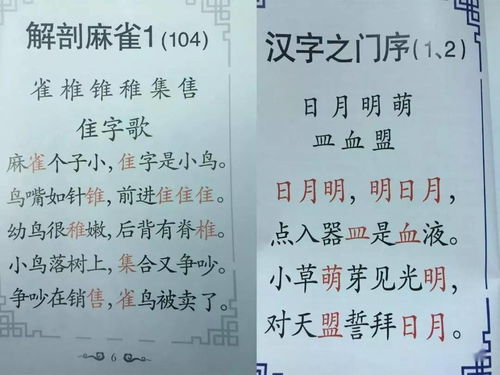 解剖麻雀1(104)
雀椎锥稚集售
隹字歌
麻雀个子小，隹字是小鸟。
鸟嘴如针锥，前进隹隹隹。
幼鸟很稚嫩，后背有脊椎。
小鸟落树上，集合又争吵。
争吵在销售，雀鸟被卖了。
6
汉字之门序(1、2)
日月明萌
皿血盟
日月明，明日月，
点入器皿是血液。
小草萌芽见光明，
对天盟誓拜日月。